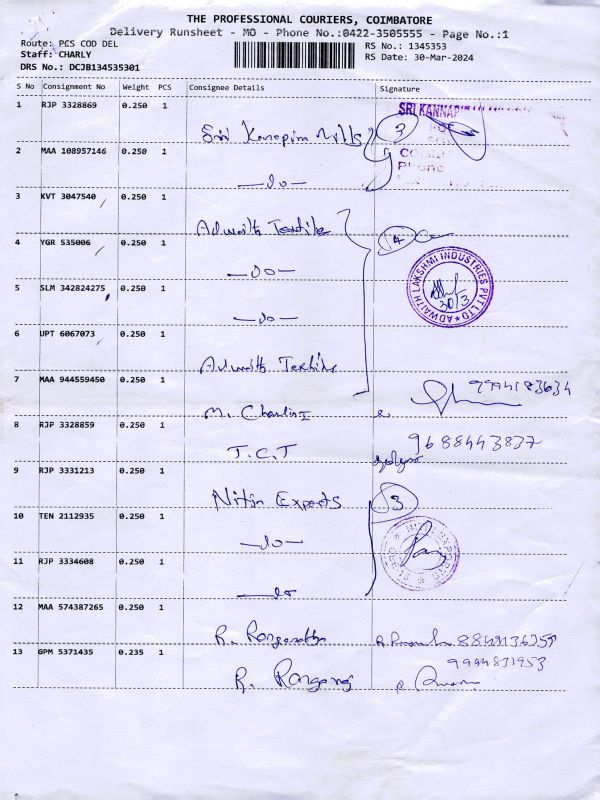 THE PROFESSIONAL COURIERS, COIMBATORE
Delivery Runsheet - MO - Phone No.:0422-3505555 - Page No.:1
Route: PCS COD DEL
RS No.: 1345353
Staff: CHARLY
RS Date: 30-Mar-2024
DRS No.: DCJB134535301
S No Consignment No Weight PCS Consignee Details Signature
1 RJP 3328869 0.250 1
SRI KANNAP
3
2 MAA 108957146 0.250 1
Phone
3 KVT 3047540 0.250 1
Adwaith Textile
4 YGR 535006 0.250 1
4
-do-
ADWAITH LAKSHMI INDUSTRIES PVT LTD
30/3
5 SLM 342824275 0.250 1
-do-
6 UPT 6067073 0.250 1
Adwaith Textile
7 MAA 944559450 0.250 1
M.
8 RJP 3328859 0.250 1
9688443837
T.C.T
9 RJP 3331213 0.250 1
Nitin Exports
3
10 TEN 2112935 0.250 1
-do-
11 RJP 3334608 0.250 1
-do-
12 MAA 574387265 0.250 1
R.
13 GPM 5371435 0.235 1
9994831953
R.